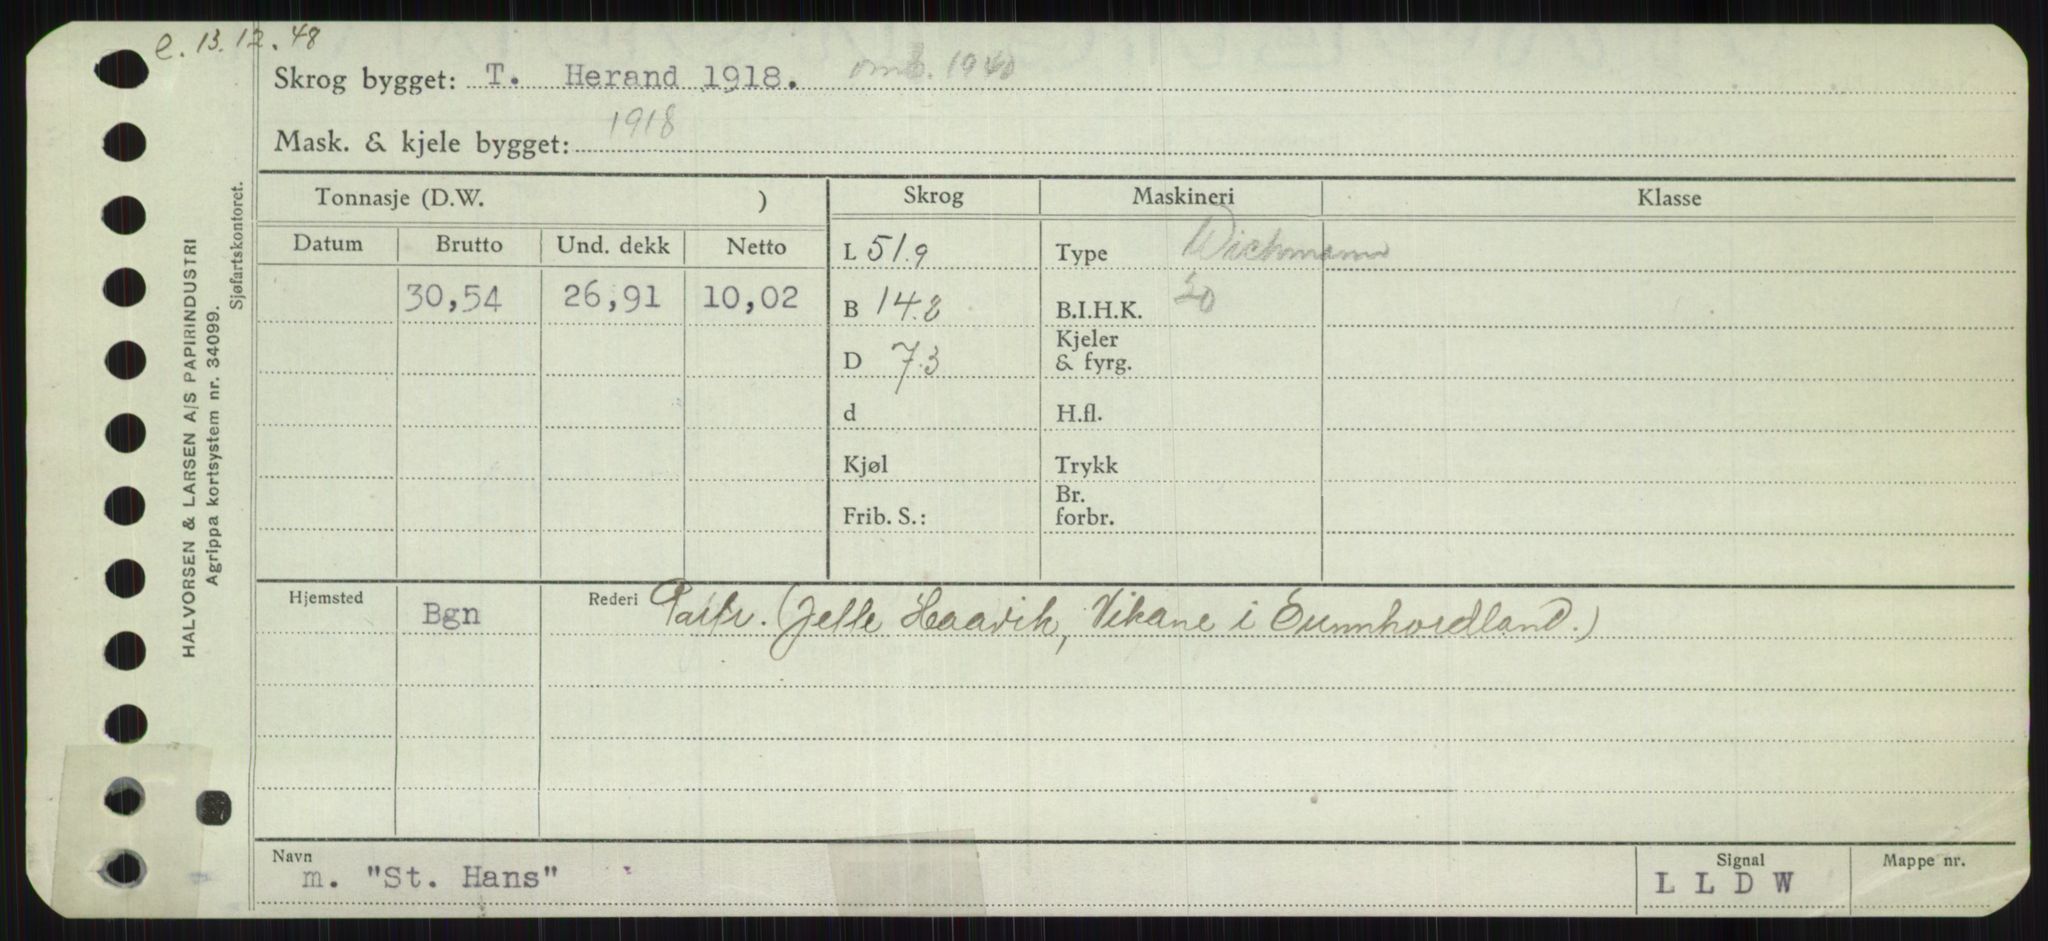 e. 13.12.48
Skrog bygget: T. Herand 1918. omb. 1940
Mask. & kjele bygget: 1918
Tonnasje (D.W. )
Skrog
Maskineri
Klasse
Datum Brutto Und. dekk Netto
30,54 26,91 10,02
L 51.9
B 14.8
D 7.3
d
Kjøl
Frib. S.:
Type Wichmann
B.I.H.K.
Kjeler
& fyrg.
H.fl.
Trykk
Br.
forbr.
Hjemsted Bgn
Rederi Partr. (Jelle Haavik, Vikane i Sunnhordland.)
Navn
m. "St. Hans"
Signal
L L D W
Mappe nr.
HALVORSEN & LARSEN A/S PAPIRINDUSTRI
Agrippa kortsystem nr. 34099.
Sjøfartskontoret.